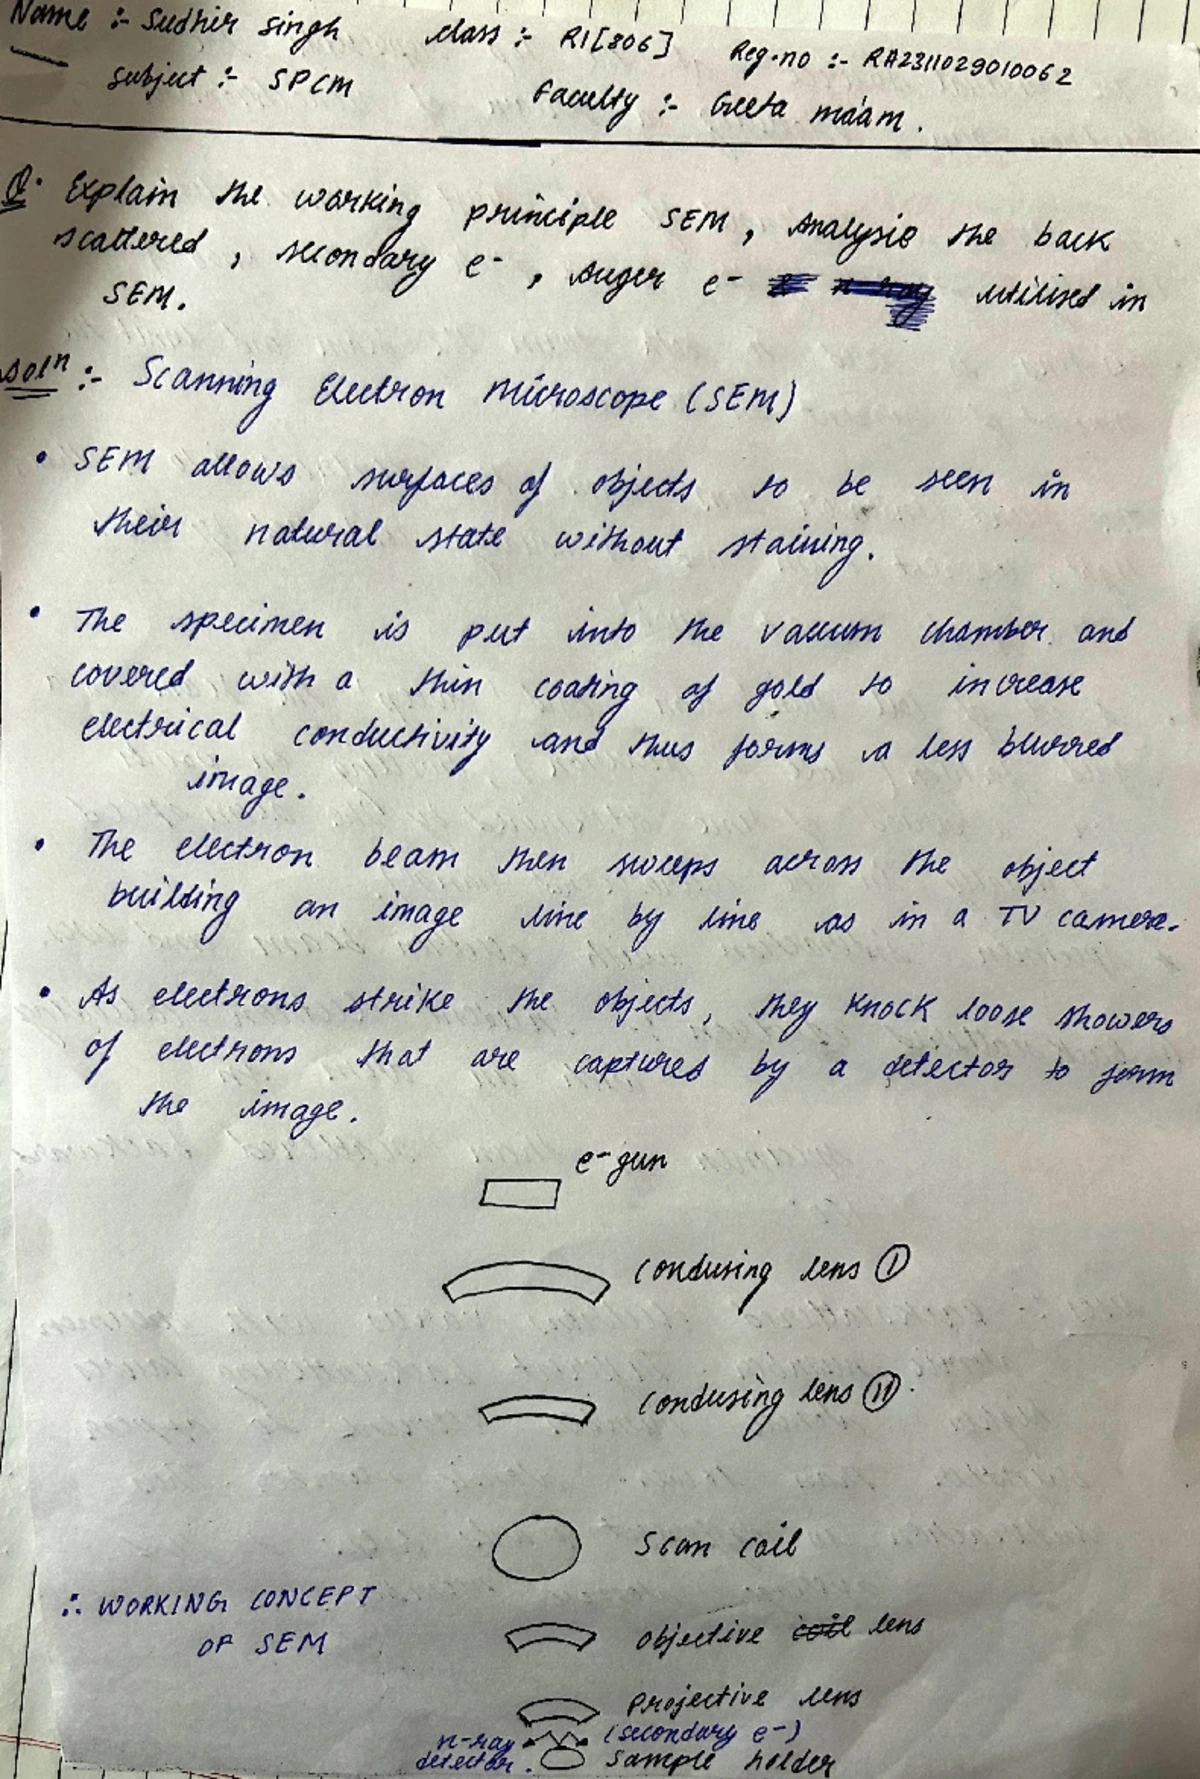 Name :- Sudhir Singh class :- R1[806] Reg.no :- RA2311029010062
Subject :- SPCM Faculty :- Geeta ma'am.
Q. Explain the working principle SEM, Analysie the back
scattered, secondary e-, Auger e- utilised in
SEM.
Solⁿ :- Scanning Electron Microscope (SEM)
• SEM allows surfaces of objects to be seen in
their natural state without staining.
• The specimen is put into the vacuum chamber and
covered with a thin coating of gold to increase
electrical conductivity and thus forms a less blurred
image.
• The electron beam then sweeps across the object
building an image line by line as in a TV camera.
• As electrons strike the objects, they knock loose showers
of electrons that are captured by a detector to form
the image.
e- gun
Condusing lens (I)
Condusing lens (II).
Scan coil
∴ WORKING CONCEPT
OF SEM
objective coil lens
Projective lens
x-ray (secondary e-)
detector. Sample holder